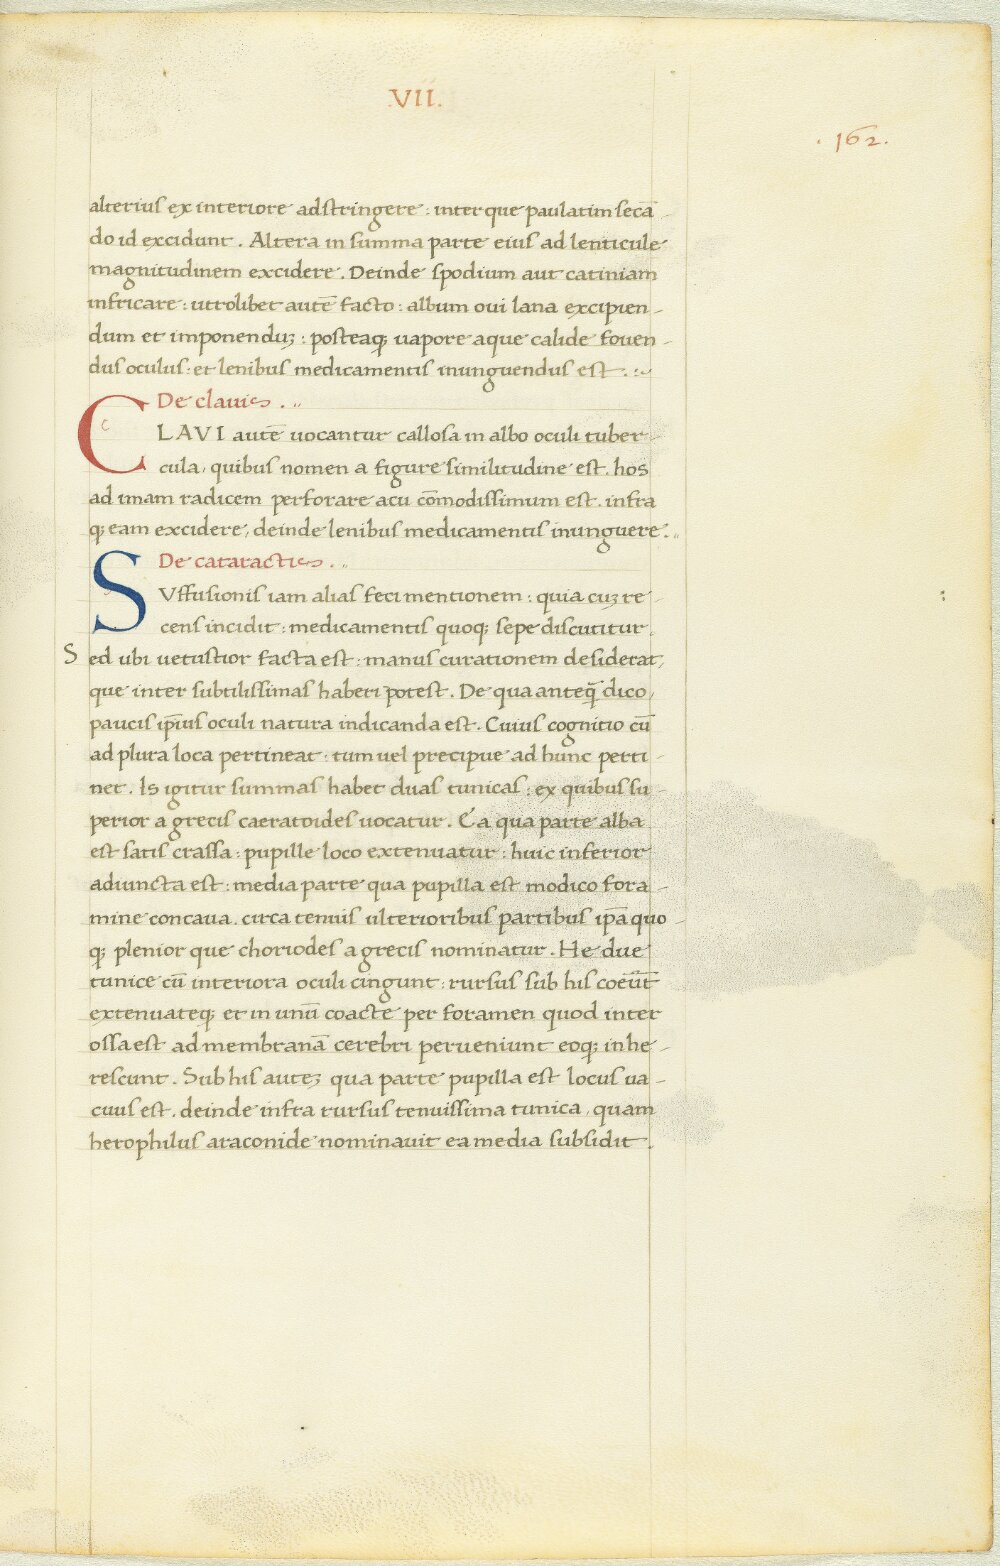 .VII.
. 162 .
alterius ex interiore adstringere : inter que paulatim secā
do id excidunt . Altera in summa parte eius ad lenticule
magnitudinem excidere . Deinde spodium aut catiniam
infricare : utrolibet autē facto : album oui lana excipien-
dum et imponenduꝫ : posteaqꝫ uapore aque calide fouen-
dus oculus : et lenibus medicamentis inunguendus est . :~
De clauis . ..
CLAVI autē uocantur callosa in albo oculi tuber-
cula, quibus nomen a figure similitudine est . hos
ad imam radicem perforare acu cōmodissimum est . infra
qꝫ eam excidere, deinde lenibus medicamentis inunguere . ..
De cataractis . ..
SVffusionis iam alias feci mentionem : quia cuꝫ re-
cens incidit : medicamentis quoqꝫ sepe discutitur .
Sed ubi uetustior facta est : manus curationem desiderat,
que inter subtilissimas haberi potest . De qua anteq̄ dico,
paucis ip̄ius oculi natura indicanda est . Cuius cognitio cū
ad plura loca pertineat : tum uel precipue ad hunc perti-
net . Is igitur summas habet duas tunicas : ex quibus su-
perior a grecis caeratoides uocatur . Ea qua parte alba
est satis crassa : pupille loco extenuatur : huic inferior
adiuncta est : media parte qua pupilla est modico fora-
mine concaua . circa tenuis ulterioribus partibus ip̄a quo-
qꝫ plenior que choriodes a grecis nominatur . He due
tunice cū interiora oculi cingunt : rursus sub his coeūt
extenuateqꝫ et in unū coacte per foramen quod inter
ossa est ad membranā cerebri perueniunt eoqꝫ inhe-
rescunt . Sub his auteꝫ qua parte pupilla est locus ua-
cuus est . deinde infra rursus tenuissima tunica, quam
herophilus araconide nominauit ea media subsidit .